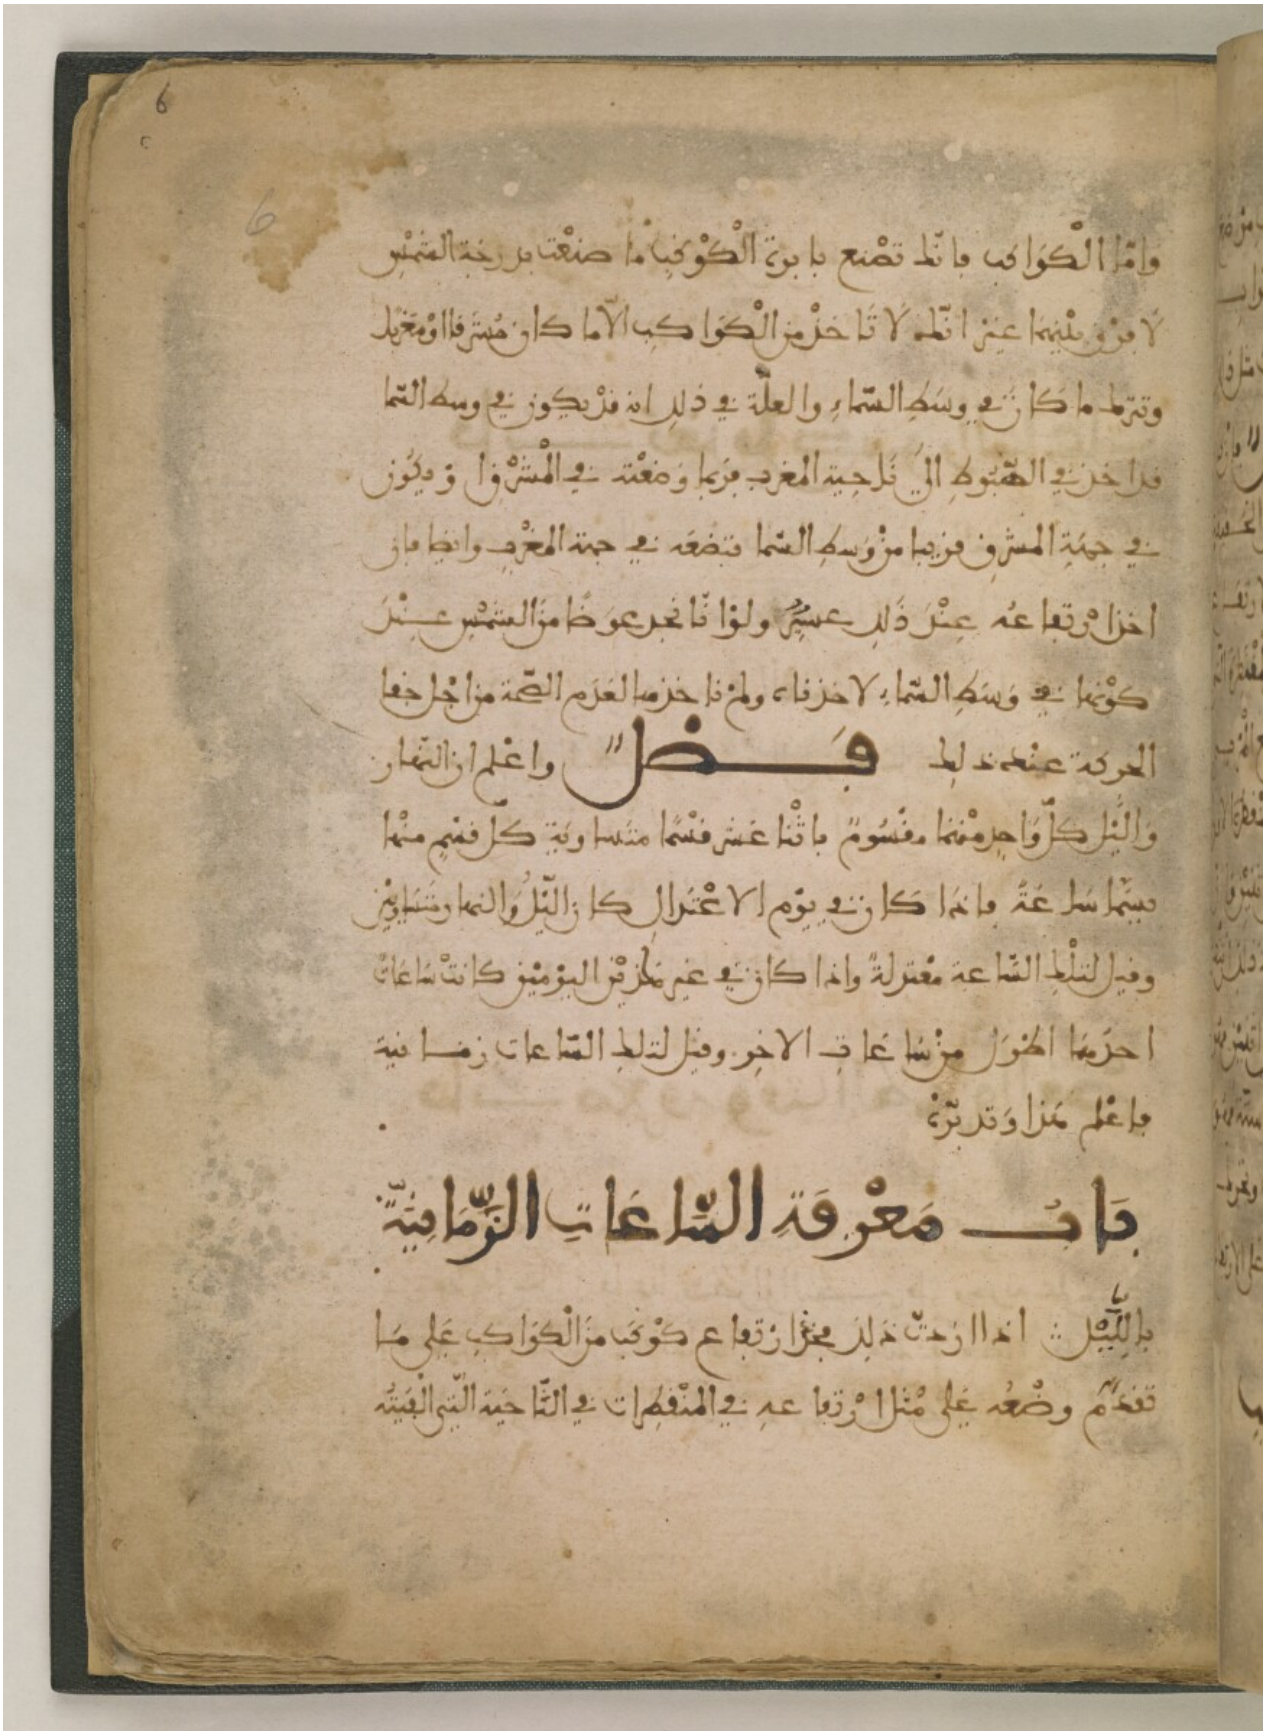 6
6
واما الكواكب فانك تصنع بابرة الكوكب ما صنعت بدرجة الشمس
لا فرق بينهما غير انك لا تاخذ من الكواكب الا ما كان مشرقا او مغربا
وتترك ما كان في وسط السماء والعلة في ذلك انه قد يكون في وسط السما
قد اخذ في الهبوط الى ناحية المغرب فربما وضعته في المشرق او يكون
في جهة المشرق قريبا من وسط السما فتضعه في جهة المغرب وايضا فان
اخذ ارتفاعه عند ذلك عسير ولو انا نجد عوضا من الشمس عند
كونها في وسط السماء لاخذناه ولم ناخذها لعدم الصحة من اجل خفا
الحركة عند ذلك فصل واعلم ان النهار
والليل كل واحد منهما مقسوم باثنا عشر قسما متساوية كل قسم منها
يسما ساعة فاذا كان في يوم الاعتدال كان الليل والنهار متساويين
وقيل لتلك الساعة معتدلة واذا كان في غير هذين اليومين كانت ساعات
احدهما اطول من ساعات الاخر وقيل لتلك الساعات زمانية
فاعلم هذا وتدبره
باب معرفة الساعات الزمانية
بالليل اذا اردت ذلك فخذ ارتفاع كوكب من الكواكب على ما
تقدم وضعه على مثل ارتفاعه في المقنطرات في الناحية التي الفيته